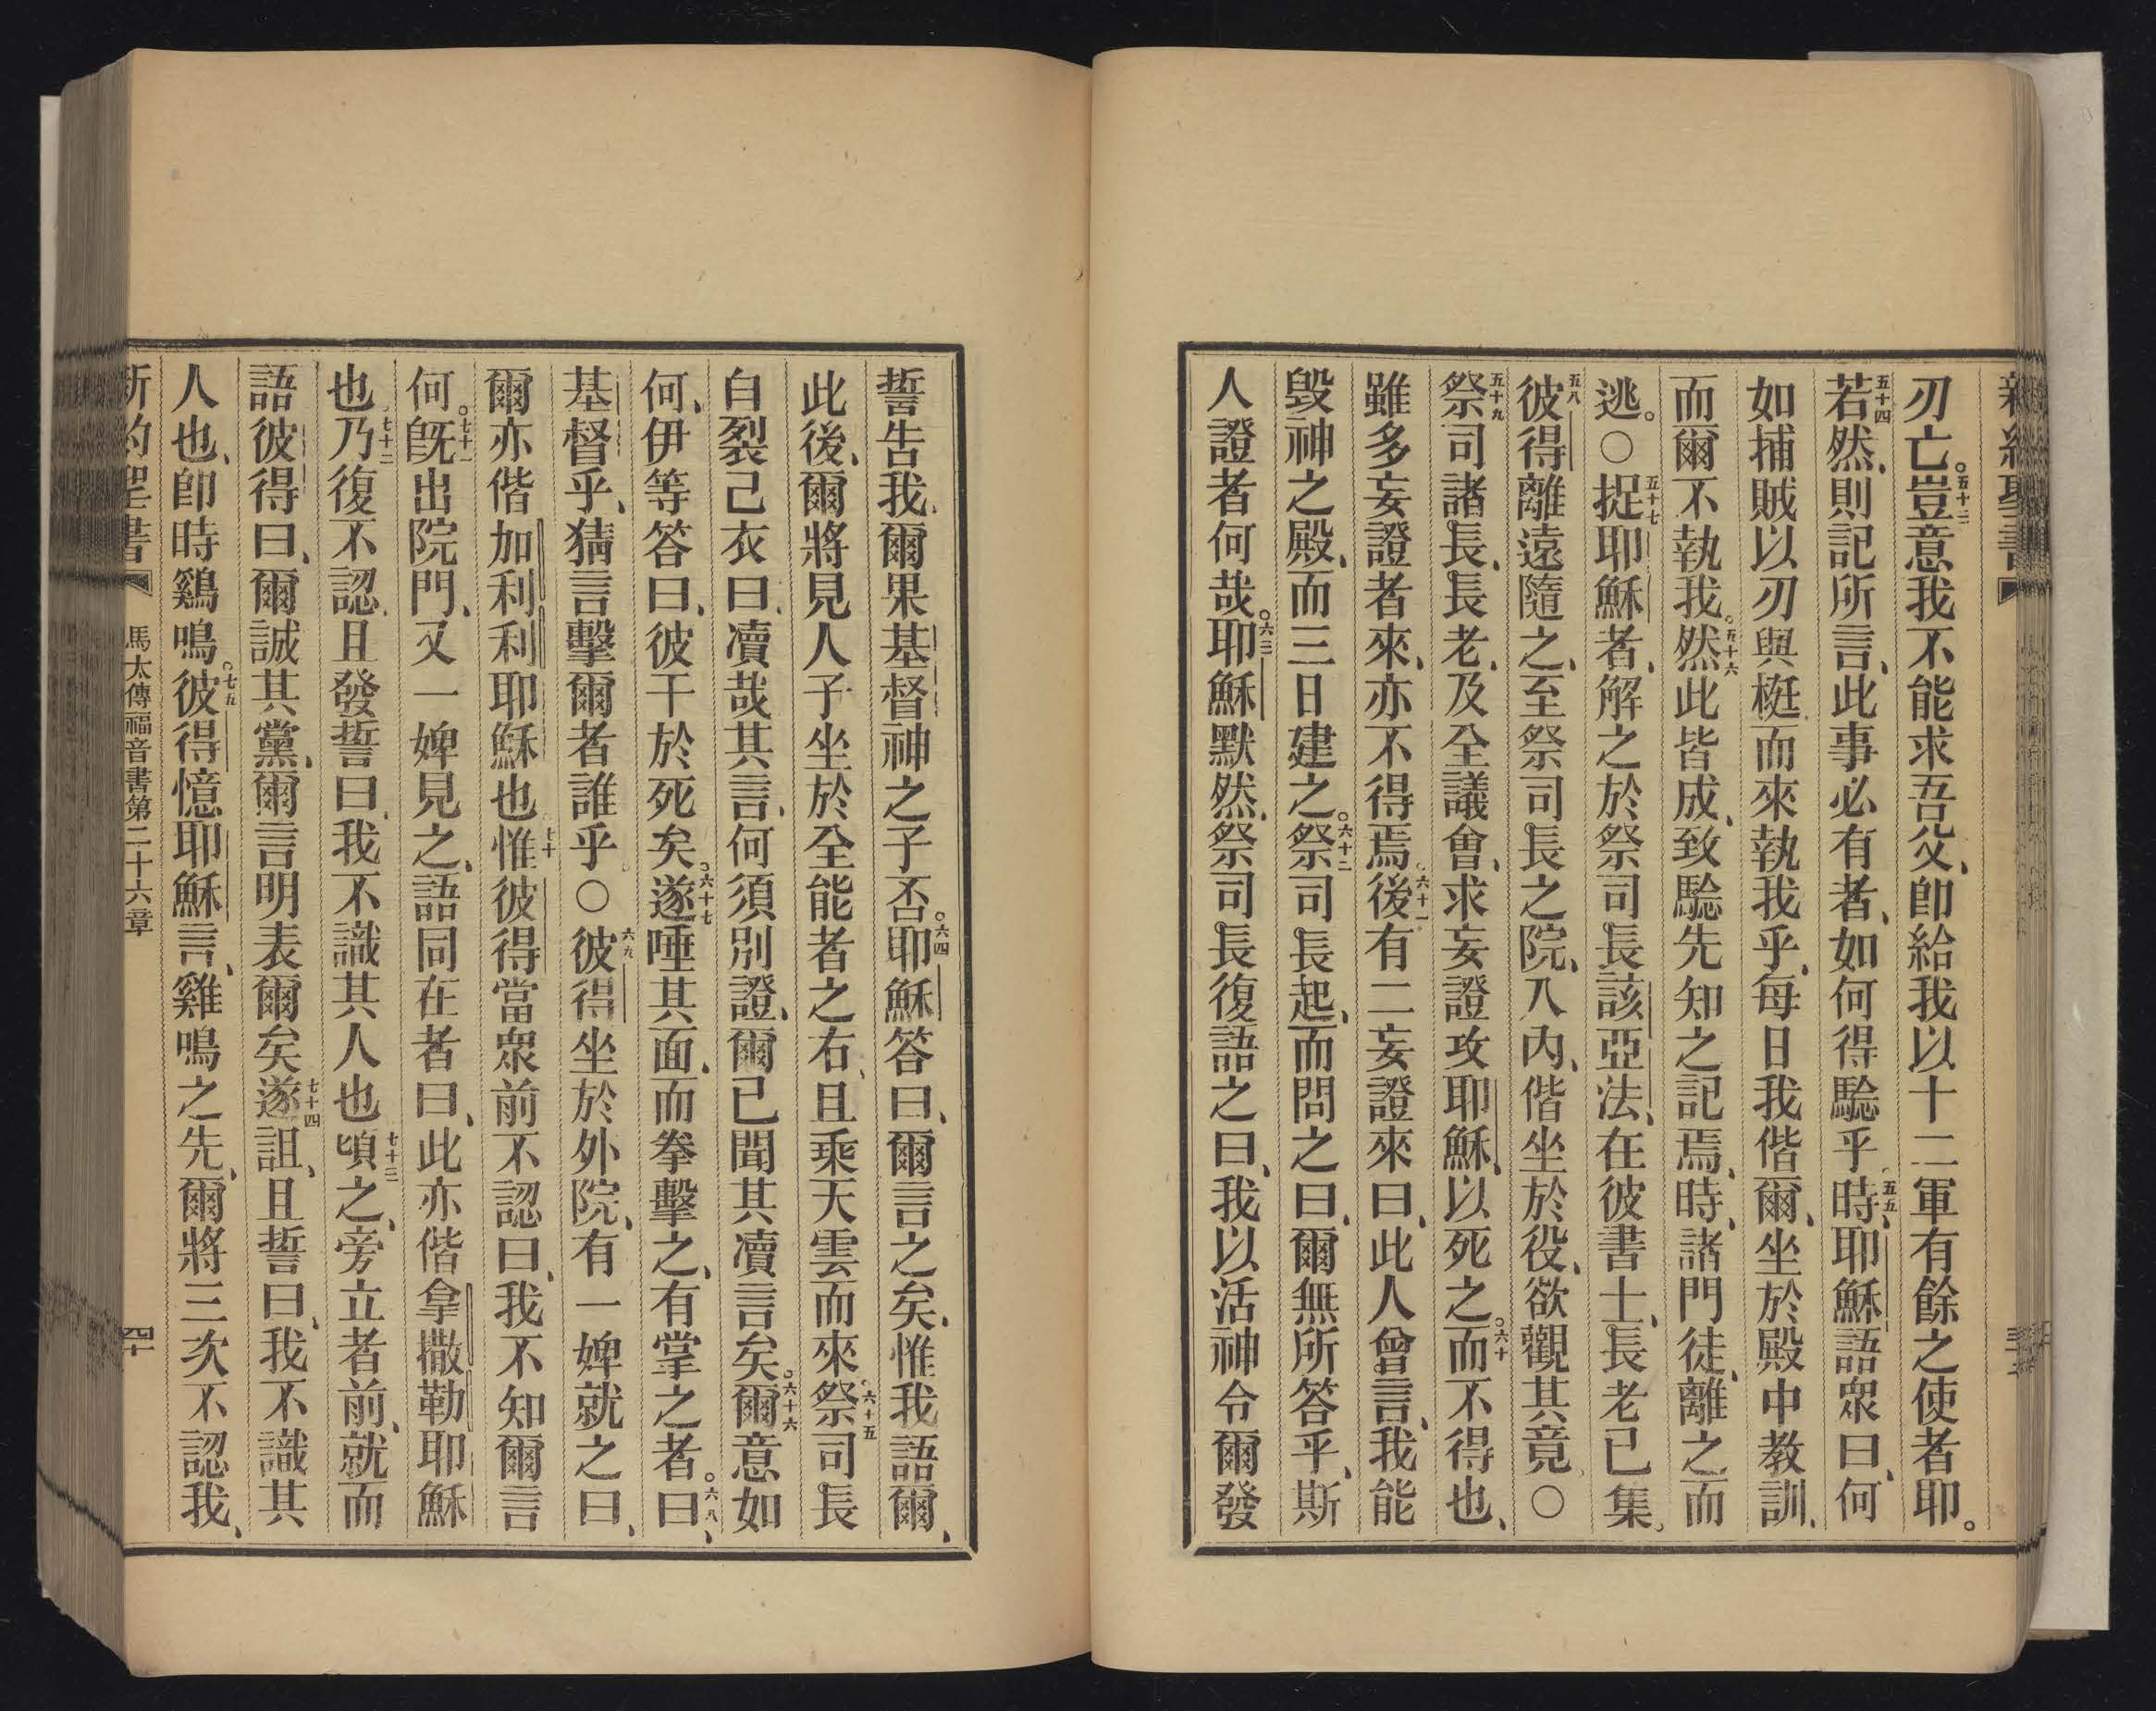 刃亡。五十三豈意我不能求吾父、卽給我以十二軍有餘之使者耶。
五十四若然、則記所言、此事必有者、如何得驗乎。五五時、耶穌語衆曰、何
如捕賊以刃與梃而來執我乎、每日我偕爾、坐於殿中教訓、
而爾不執我。五十六然此皆成、致驗先知之記焉、時、諸門徒、離之而
逃。○五十七捉耶穌者、解之於祭司長該亞法、在彼書士、長老已集。
五八彼得離遠隨之、至祭司長之院、入內、偕坐於役、欲觀其竟。○
五十九祭司諸長、長老、及全議會、求妄證攻耶穌、以死之。六十而不得也、
雖多妄證者來、亦不得焉。六十一後有二妄證來曰、此人曾言、我能
毀神之殿、而三日建之。六十二祭司長起、而問之曰、爾無所答乎、斯
人證者何哉。六三耶穌默然、祭司長復語之曰、我以活神令爾發
誓告我、爾果基督神之子否。六四耶穌答曰、爾言之矣、惟我語爾、
此後、爾將見人子坐於全能者之右、且乘天雲而來。六十五祭司長
自裂己衣曰、凟哉其言、何須別證、爾已聞其凟言矣。六十六爾意如
何、伊等答曰、彼干於死矣。六十七遂唾其面、而拳擊之、有掌之者。六八曰、
基督乎、猜言擊爾者誰乎。○六九彼得坐於外院、有一婢就之曰、
爾亦偕加利利耶穌也。七十惟彼得當衆前不認曰、我不知爾言
何。七十一旣出院門、又一婢見之、語同在者曰、此亦偕拿撒勒耶穌
也。七十二乃復不認、且發誓曰、我不識其人也。七十三頃之、旁立者前、就而
語彼得曰、爾誠其黨、爾言明表爾矣。七十四遂詛、且誓曰、我不識其
人也、卽時鷄鳴。七五彼得憶耶穌言、雞鳴之先、爾將三次不認我、
馬太傳福音書第二十六章
四十